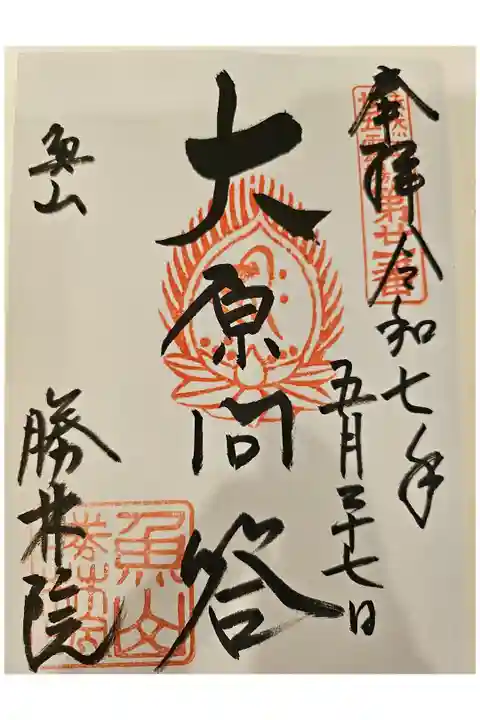 奉拝
令和七年
五月二十七日
大原問答
魚山
勝林院
第廿一番
魚山